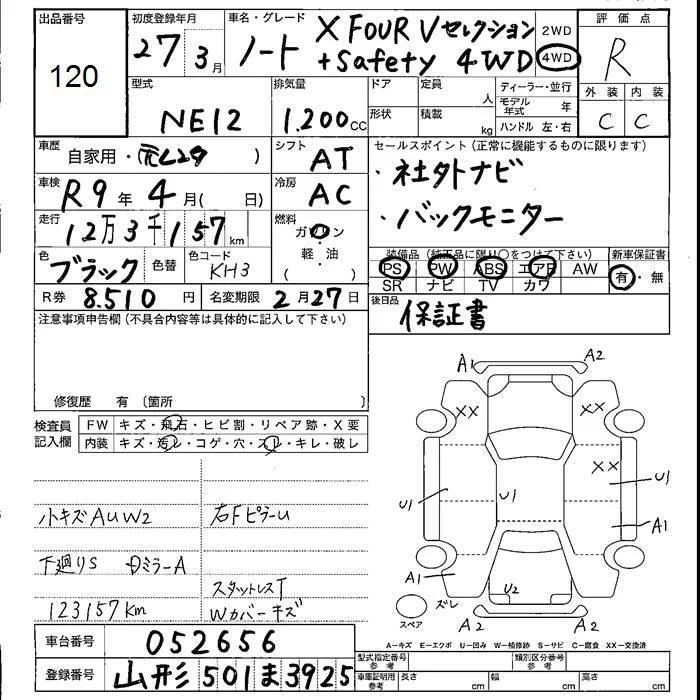 出品番号
120
初度登録年月
27 3月
車名・グレード
ノート X FOUR Vセレクション
+Safety 4WD
2WD
4WD
評価点
R
外装 内装
C C
型式
NE12
排気量
1.200cc
ドア
定員
人
形状
積載
kg
ディーラー・並行
モデル年式 年
ハンドル 左・右
車歴
自家用・( )
シフト
AT
車検
R9年4月( 日)
冷房
AC
走行
12万3千157km
燃料
ガソリン
・軽・油
( )
色
ブラック
色替
色コード
KH3
R券 8.510円
名変期限 2月27日
セールスポイント(正常に機能するものに限ります)
・社外ナビ
・バックモニター
装備品(純正品に限り○をつけて下さい)
PS PW ABS エアB AW
SR ナビ TV カワ
新車保証書
有・無
後日品
保証書
注意事項申告欄(不具合内容等は具体的に記入して下さい)
修復歴 有〔箇所 〕
検査員記入欄
FW キズ・飛石・ヒビ割・リペア跡・X要
内装 キズ・汚レ・コゲ・穴・スレ・キレ・破レ
小キズAUW2
右FピラーU
下廻りS DミラーA
スタットレスT
123157Km
Wカバーキズ
A1 A2
XX XX
XX
U1 U1 U1
A1
A1
U2
スペア
ズレ
A2 A2
A=キズ E=エクボ U=凹み W=補修跡 S=サビ C=腐食 XX=交換済
車台番号 052656
登録番号 山形501ま3925
型式指定番号 参考
類別区分番号 参考
車庫証明用 参考
長さ cm
幅 cm
高さ cm